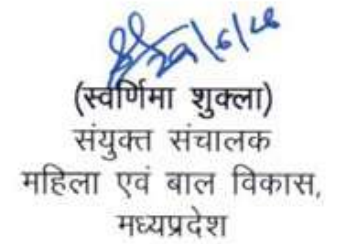 (स्वर्णिमा शुक्ला)
संयुक्त संचालक
महिला एवं बाल विकास,
मध्यप्रदेश